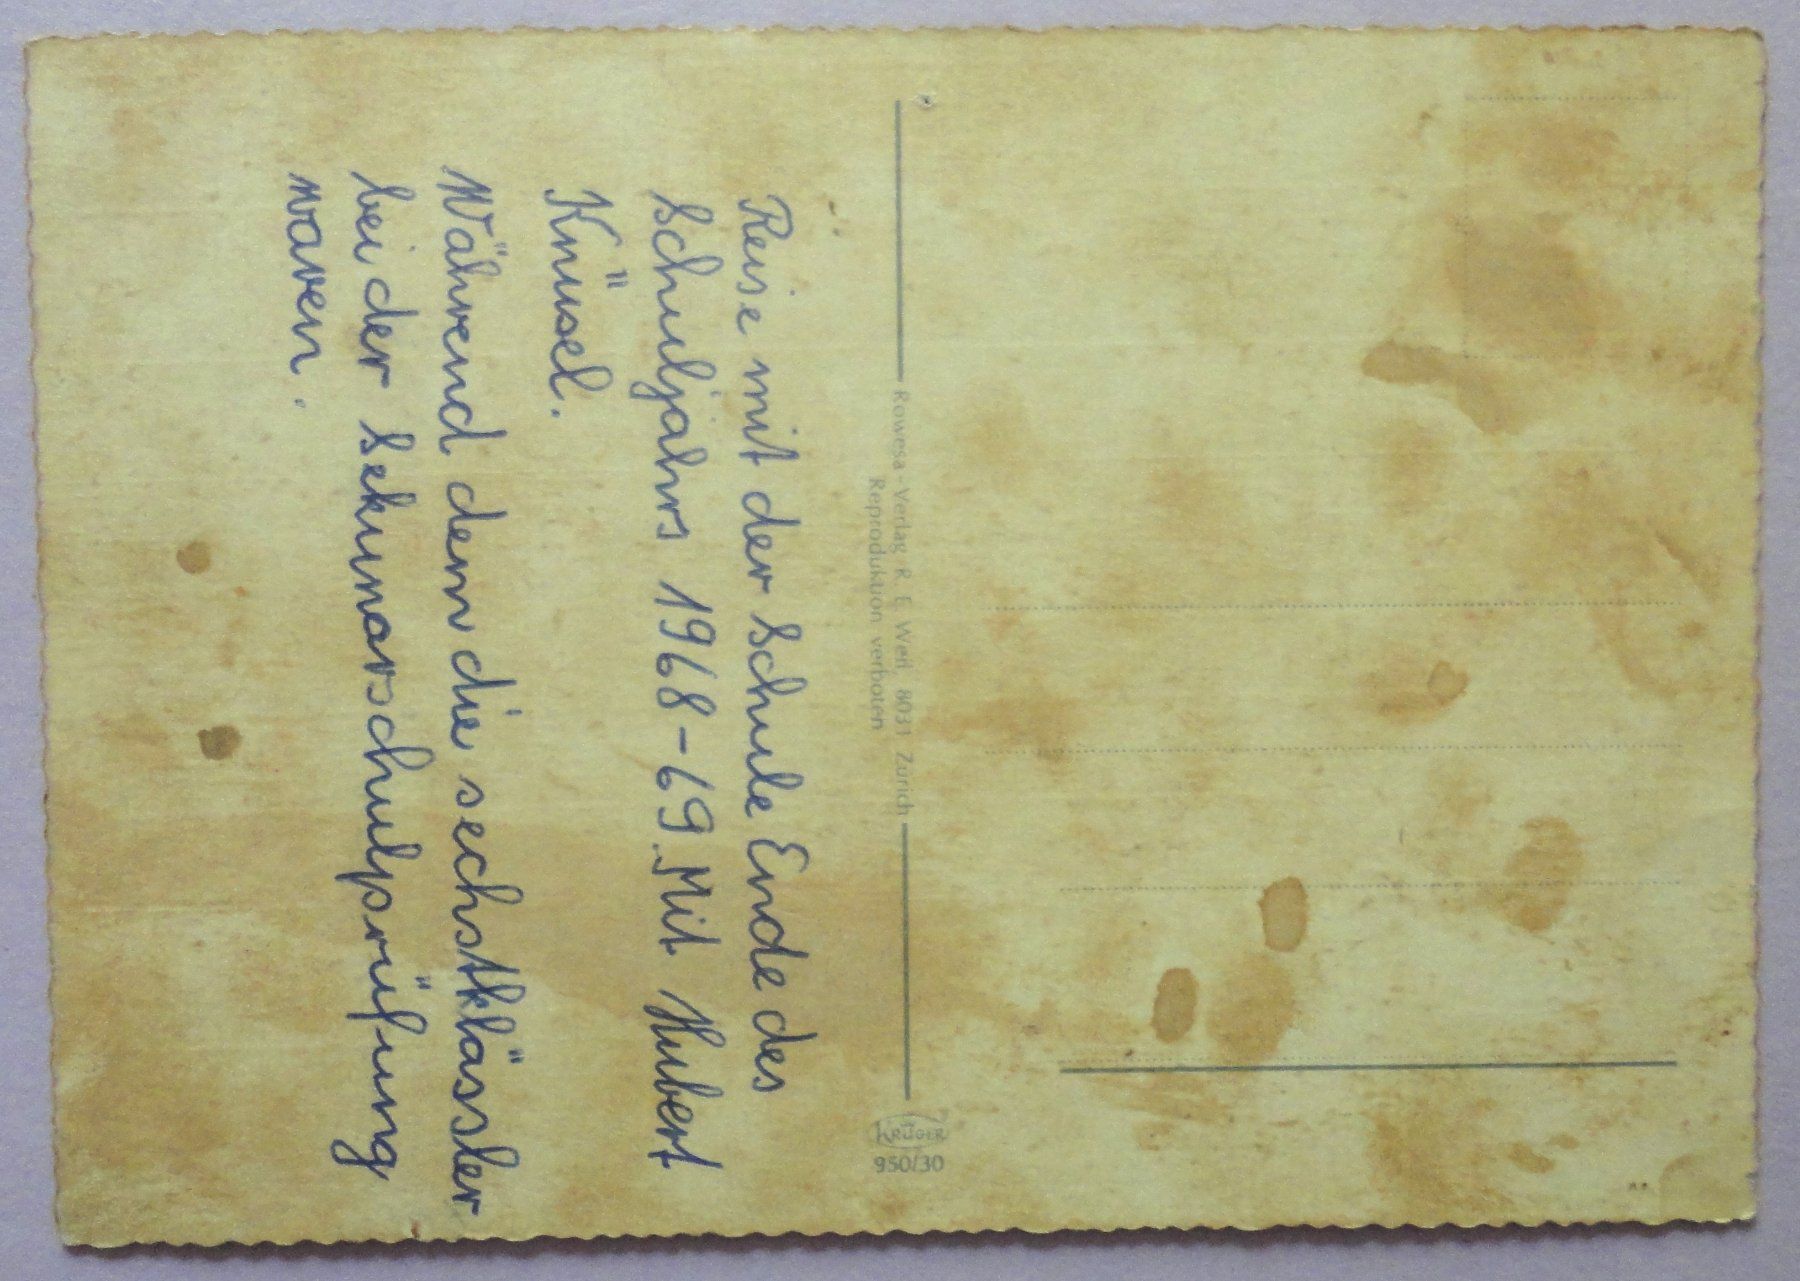 Reise mit der Schule Ende des
Schuljahrs 1968-69 Mit Hubert
Knüsel.
Während dem die sechstklässler
bei der Sekunarschulprüfung
waren.
Rowesa-Verlag R. E. Werl, 8031 Zürich
Reproduktion verboten
KRÜGER
950/30